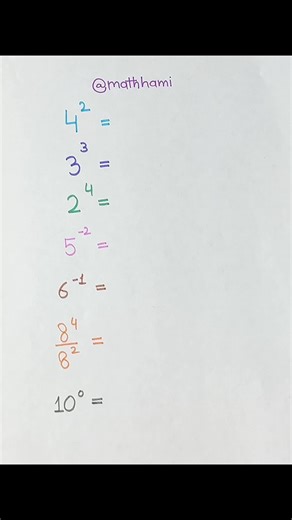 @mathhami
4² =
3³ =
2⁴ =
5⁻² =
6⁻¹ =
8⁴/8² =
10⁰ =